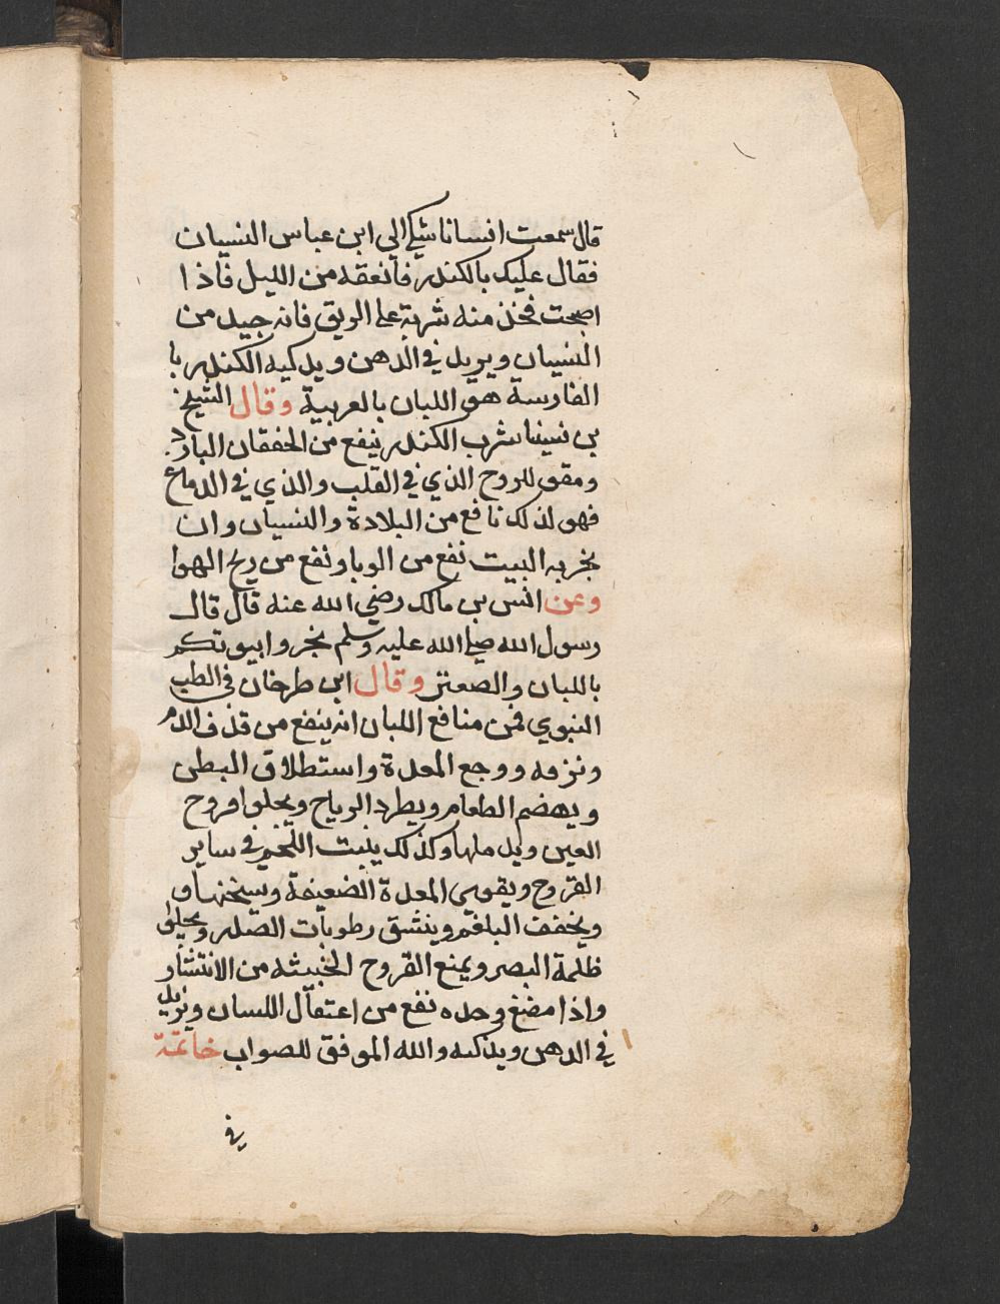 قال سمعت انسانا شكي الي ابن عباس النسيان
فقال عليك بالكندر فانعقه من الليل فاذا
اصبحت فخذ منه شربة علي الريق فانه جيد من
النسيان ويريد في الدهن ويدكيه الكندر با
الفارسة هو اللبان بالعربية وقال الشيخ
بن سينا شرب الكندر ينفع من الخفقان البارد
ومقو للروح الذي في القلب والذي في الدماغ
فهو لذلك نافع من البلادة والنسيان وان
بخر به البيت نفع من الوبا ونفع من ريح الهوا
وعن انس بن مالك رضي الله عنه قال قال
رسول الله صلي الله عليه وسلم بخروا بيوتكم
باللبان والصعتر وقال ابن طرخان في الطب
النبوي فمن منافع اللبان انه ينفع من قذف الدم
ونزفه ووجع المعدة واستطلاق البطن
ويهضم الطعام ويطرد الرياح ويجلوا قروح
العين ويدملها وكذلك ينبت اللحم في ساير
القروح ويقوي المعدة الضعيفة وسخنها و
ويخفف البلغم وينشق رطوبات الصدر ويجلوا
ظلمة البصر ويمنع القروح الخبيثه من الانتشار
واذا مضغ وحده نفع من اعتقال اللسان ويزيل
في الدهن ويذكيه والله الموفق للصواب خاتمة
في